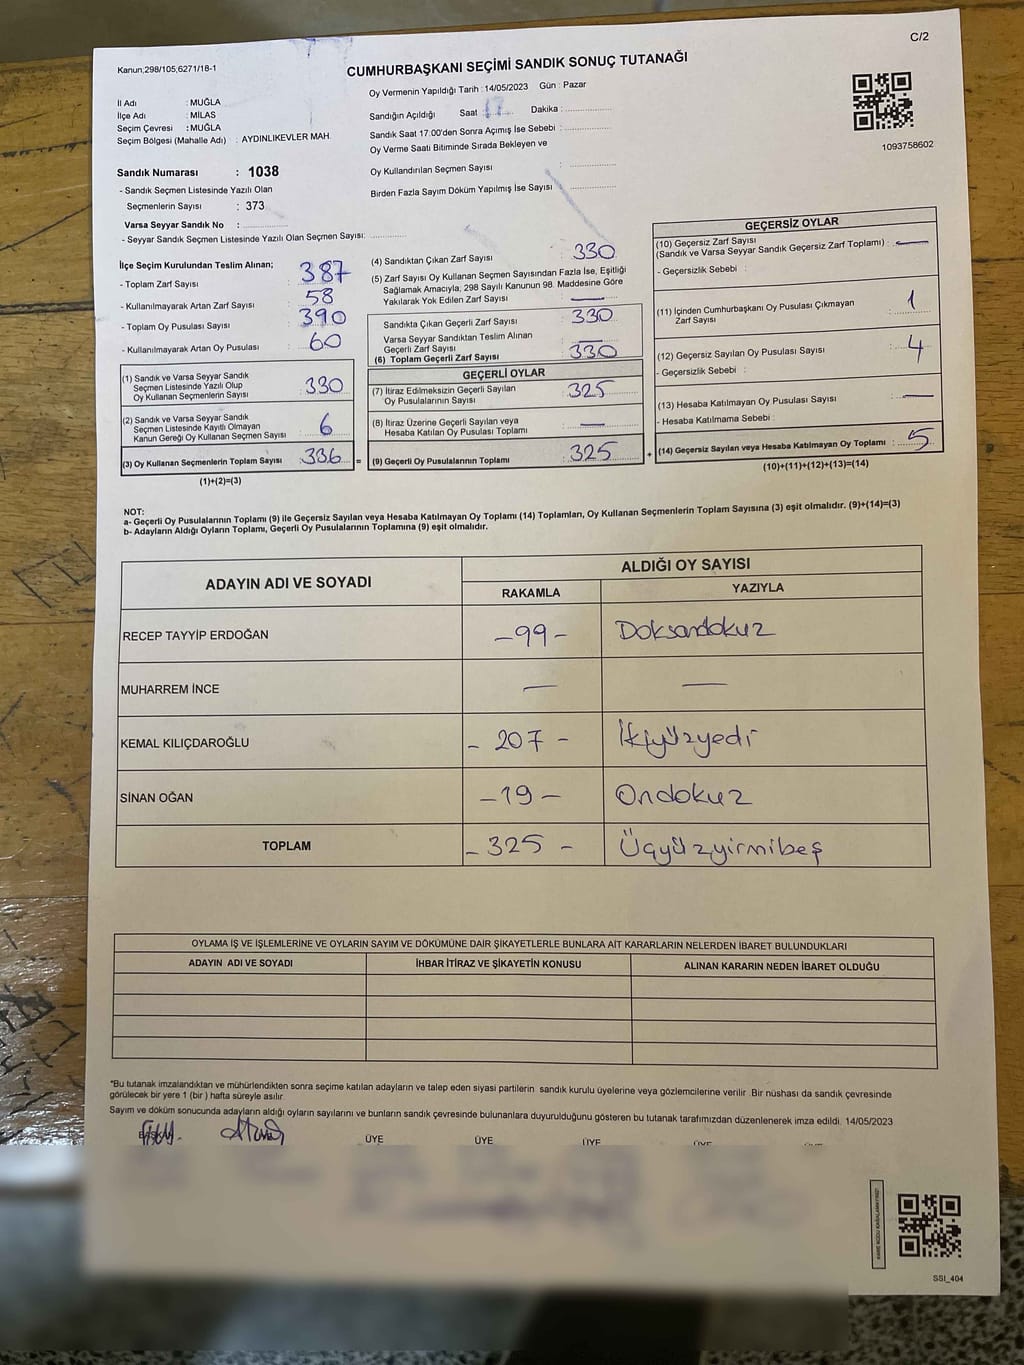 C/2
Kanun;298/105,6271/18-1
CUMHURBAŞKANI SEÇİMİ SANDIK SONUÇ TUTANAĞI
İl Adı : MUĞLA
İlçe Adı : MİLAS
Seçim Çevresi : MUĞLA
Seçim Bölgesi (Mahalle Adı) : AYDINLIKEVLER MAH.
Sandık Numarası : 1038
- Sandık Seçmen Listesinde Yazılı Olan
Seçmenlerin Sayısı : 373
Varsa Seyyar Sandık No :
- Seyyar Sandık Seçmen Listesinde Yazılı Olan Seçmen Sayısı:
Oy Vermenin Yapıldığı Tarih :14/05/2023 Gün : Pazar
Sandığın Açıldığı Saat 17 Dakika :
Sandık Saat 17.00'den Sonra Açımış İse Sebebi :
Oy Verme Saati Bitiminde Sırada Bekleyen ve
Oy Kullandırılan Seçmen Sayısı :
Birden Fazla Sayım Döküm Yapılmış İse Sayısı
1093758602
İlçe Seçim Kurulundan Teslim Alınan;
- Toplam Zarf Sayısı : 387
- Kullanılmayarak Artan Zarf Sayısı : 58
- Toplam Oy Pusulası Sayısı : 390
- Kullanılmayarak Artan Oy Pusulası : 60
(1) Sandık ve Varsa Seyyar Sandık
Seçmen Listesinde Yazılı Olup
Oy Kullanan Seçmenlerin Sayısı : 330
(2) Sandık ve Varsa Seyyar Sandık
Seçmen Listesinde Kayıtlı Olmayan
Kanun Gereği Oy Kullanan Seçmen Sayısı : 6
(3) Oy Kullanan Seçmenlerin Toplam Sayısı : 336 =
(1)+(2)=(3)
(4) Sandıktan Çıkan Zarf Sayısı : 330
(5) Zarf Sayısı Oy Kullanan Seçmen Sayısından Fazla İse, Eşitliği
Sağlamak Amacıyla; 298 Sayılı Kanunun 98. Maddesine Göre
Yakılarak Yok Edilen Zarf Sayısı : —
Sandıkta Çıkan Geçerli Zarf Sayısı : 330
Varsa Seyyar Sandıktan Teslim Alınan
Geçerli Zarf Sayısı : —
(6) Toplam Geçerli Zarf Sayısı : 330
GEÇERLİ OYLAR
(7) İtiraz Edilmeksizin Geçerli Sayılan
Oy Pusulalarının Sayısı : 325
(8) İtiraz Üzerine Geçerli Sayılan veya
Hesaba Katılan Oy Pusulası Toplamı : —
(9) Geçerli Oy Pusulalarının Toplamı : 325 +
GEÇERSİZ OYLAR
(10) Geçersiz Zarf Sayısı
(Sandık ve Varsa Seyyar Sandık Geçersiz Zarf Toplamı) : —
- Geçersizlik Sebebi :
(11) İçinden Cumhurbaşkanı Oy Pusulası Çıkmayan
Zarf Sayısı : 1
(12) Geçersiz Sayılan Oy Pusulası Sayısı : 4
- Geçersizlik Sebebi :
(13) Hesaba Katılmayan Oy Pusulası Sayısı : —
- Hesaba Katılmama Sebebi :
(14) Geçersiz Sayılan veya Hesaba Katılmayan Oy Toplamı : 5
(10)+(11)+(12)+(13)=(14)
NOT:
a- Geçerli Oy Pusulalarının Toplamı (9) ile Geçersiz Sayılan veya Hesaba Katılmayan Oy Toplamı (14) Toplamları, Oy Kullanan Seçmenlerin Toplam Sayısına (3) eşit olmalıdır. (9)+(14)=(3)
b- Adayların Aldığı Oyların Toplamı, Geçerli Oy Pusulalarının Toplamına (9) eşit olmalıdır.
ADAYIN ADI VE SOYADI ALDIĞI OY SAYISI
RAKAMLA YAZIYLA
RECEP TAYYİP ERDOĞAN -99- Doksandokuz
MUHARREM İNCE — —
KEMAL KILIÇDAROĞLU - 207 - İkiyüzyedi
SİNAN OĞAN -19- Ondokuz
TOPLAM - 325 - Üçyüzyirmibeş
OYLAMA İŞ VE İŞLEMLERİNE VE OYLARIN SAYIM VE DÖKÜMÜNE DAİR ŞİKAYETLERLE BUNLARA AİT KARARLARIN NELERDEN İBARET BULUNDUKLARI
ADAYIN ADI VE SOYADI İHBAR İTİRAZ VE ŞİKAYETİN KONUSU ALINAN KARARIN NEDEN İBARET OLDUĞU
*Bu tutanak imzalandıktan ve mühürlendikten sonra seçime katılan adayların ve talep eden siyasi partilerin sandık kurulu üyelerine veya gözlemcilerine verilir .Bir nüshası da sandık çevresinde
görülecek bir yere 1 (bir ) hafta süreyle asılır.
Sayım ve döküm sonucunda adayların aldığı oyların sayılarını ve bunların sandık çevresinde bulunanlara duyurulduğunu gösteren bu tutanak tarafımızdan düzenlenerek imza edildi. 14/05/2023
ÜYE ÜYE ÜYE ÜYE ÜYE
SSI_404